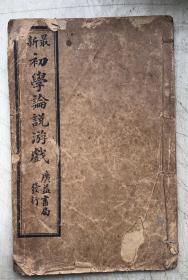 最新
初學論說游戲
廣益書局
發行